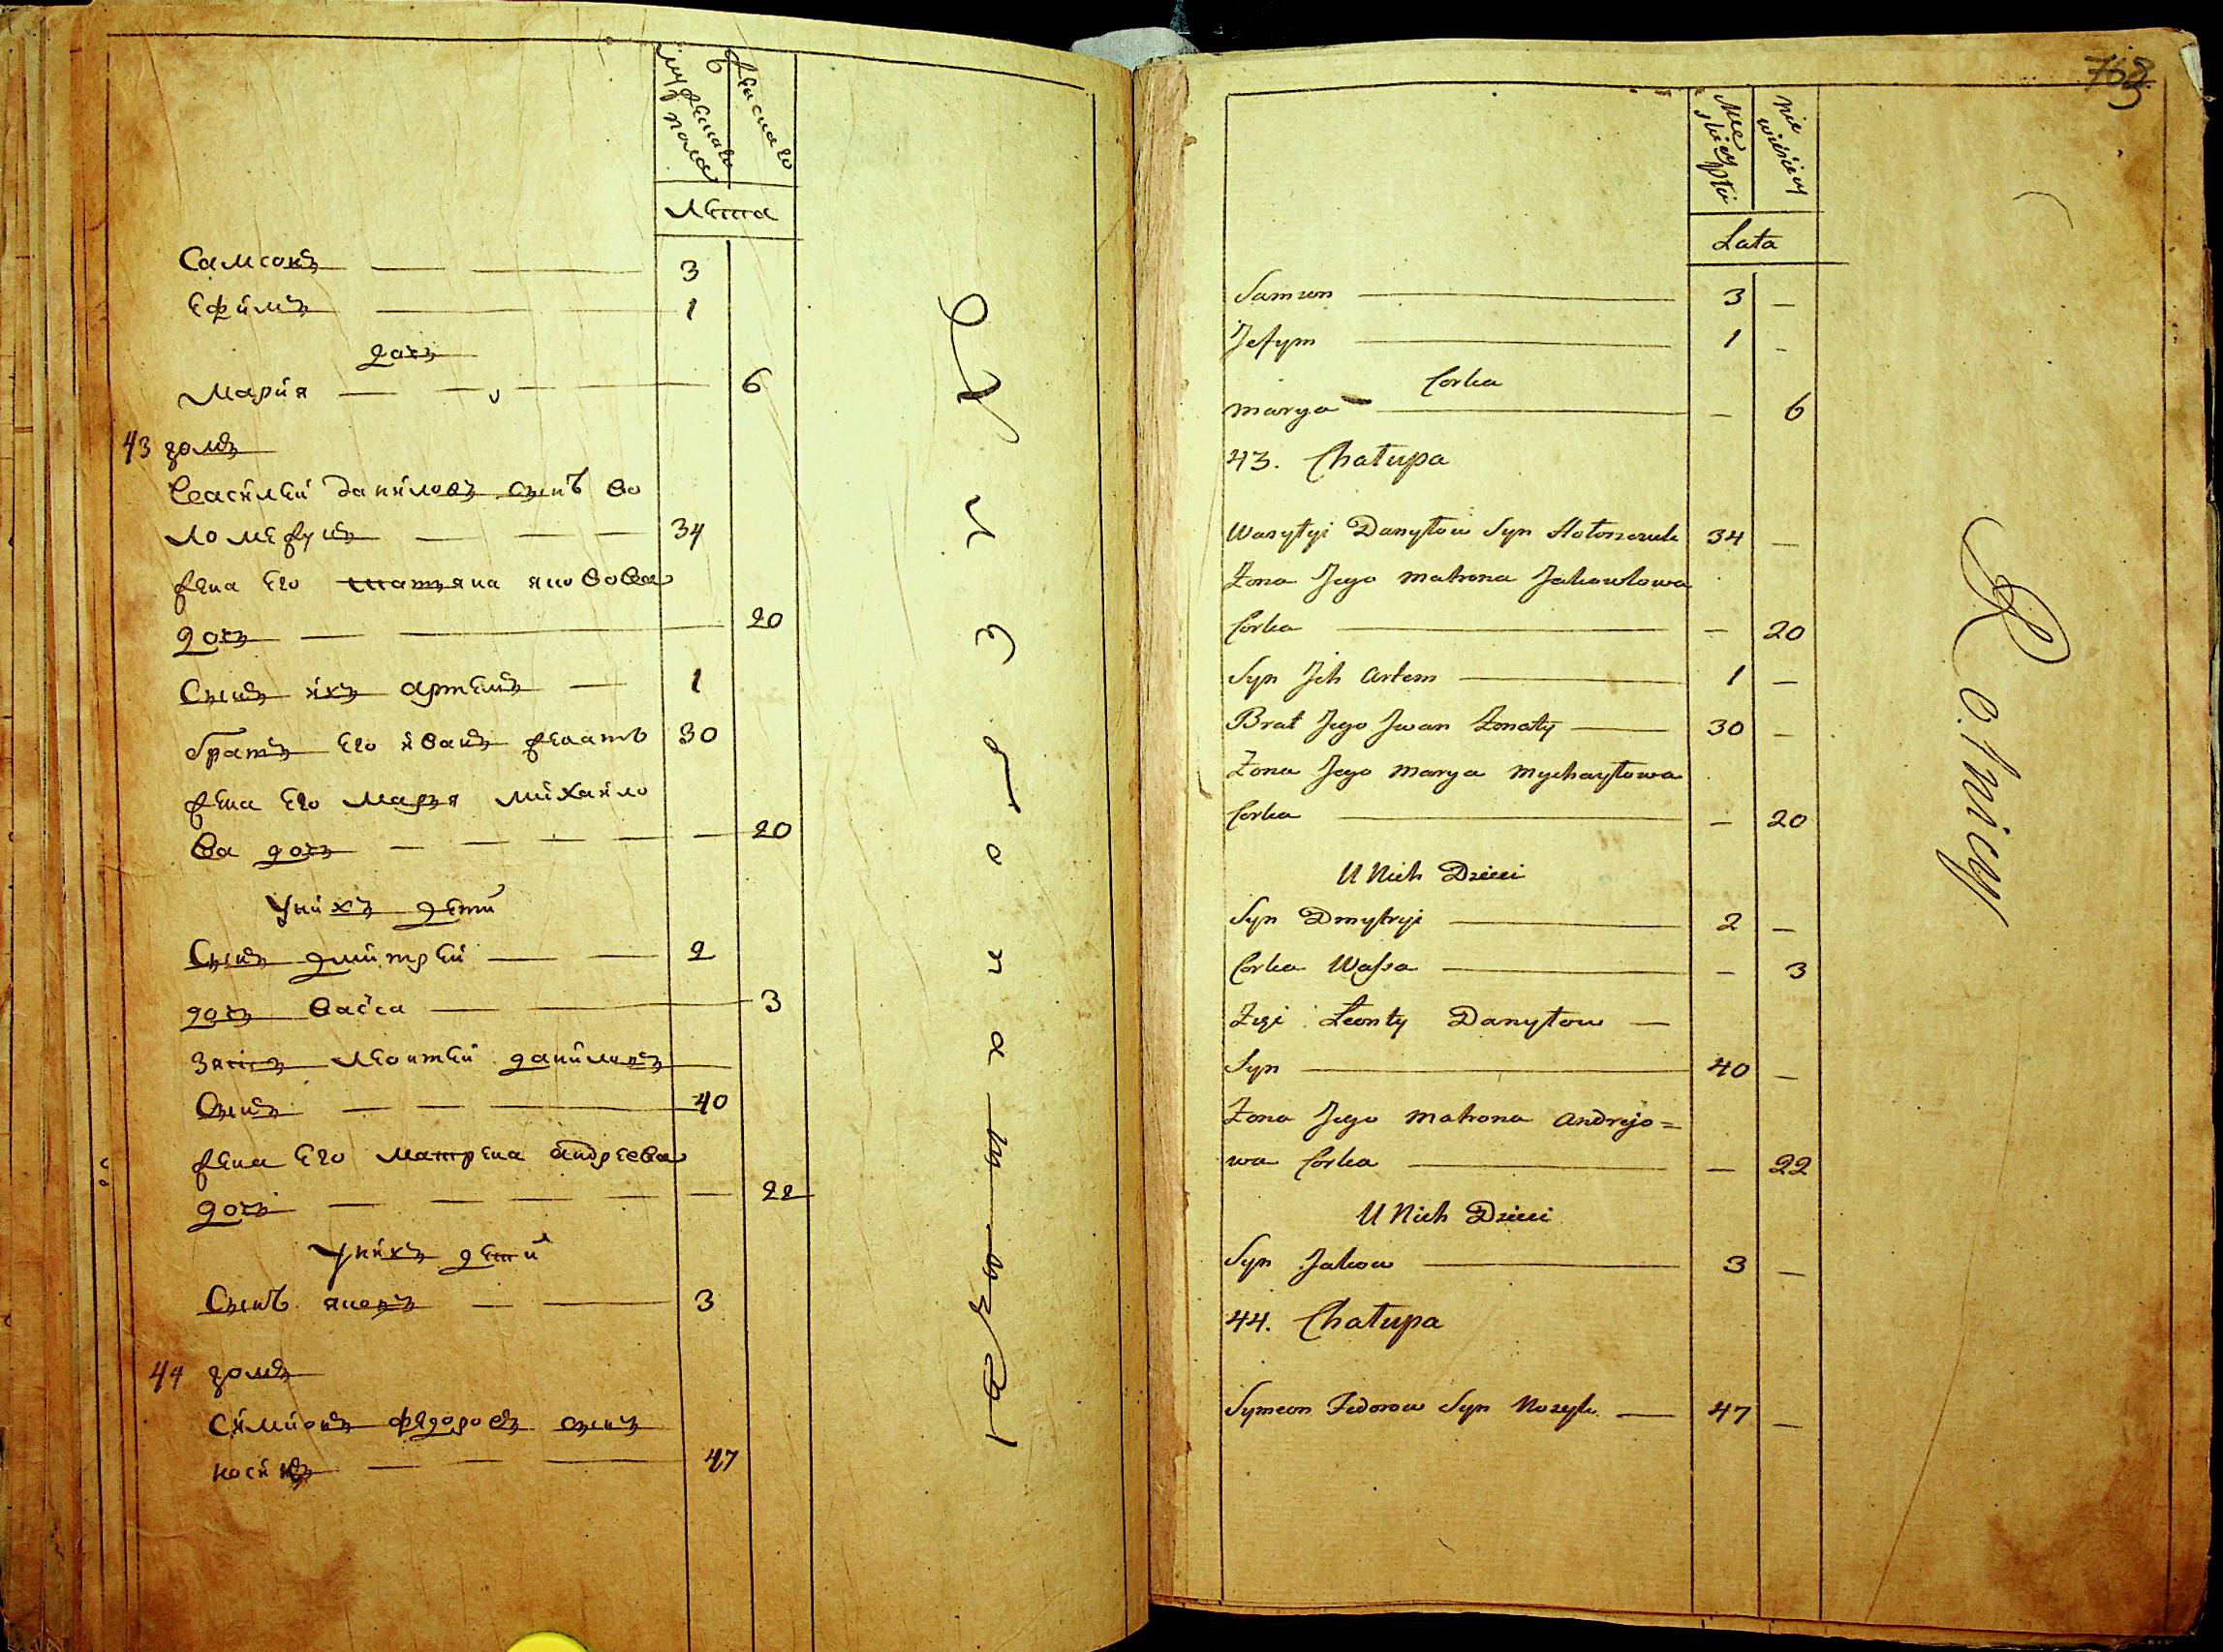 мужеска пола
женска го
Лета
Самсонъ 3
Ефимъ 1
дочъ
Мария 6
43 домъ
Василей даниловъ сынъ во
34
жена Его татяна яковова
дочъ 20
Сынъ ихъ артемъ 1
братъ Его иванъ женатъ 30
жена Его Маря михайло
ва дочъ 20
у нихъ дети
Сынъ дмитрей 2
дочъ васса 3
зять леонтей даниловъ
Сынъ 40
жена Его матрена андреева
дочъ 22
у нихъ дети
Сынъ яковъ 3
44 домъ
Симионъ федоровъ сынъ
носикъ 47
763
Męskiey płci
niewieściey
Lata
Samson 3 —
Jefym 1 -
Corka
marya — 6
43. Chałupa
Wasyłyi Danyłow Syn 34 —
Żona Jego matrona Jakowlowa
Corka — 20
Syn Jch Artem 1 —
Brat Jego Jwan Żonaty 30 —
Żona Jego marya mychayłowa
Corka — 20
U Nich Dzieci
Syn Dmytryi 2 —
Corka Wassa — 3
Leonty Danyłow —
Syn 40 —
Żona Jego matrona Andrejo=
wa Corka — 22
U Nich Dzieci
Syn Jakow 3 —
44. Chałupa
Symeon Fedorow Syn Nosyk 47 —
Rolnicy